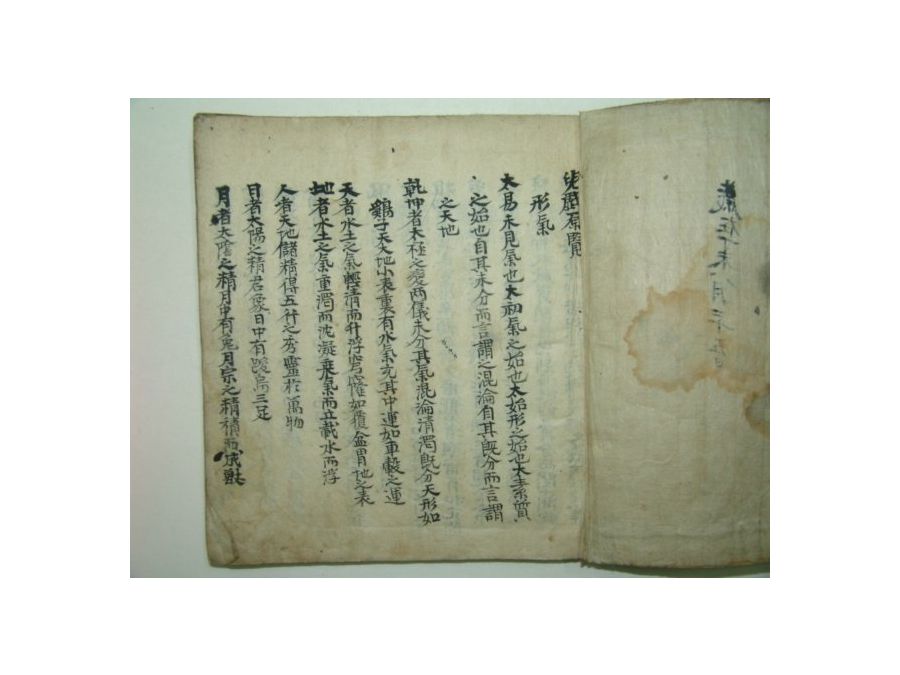 歲年未月
兒學原覽
形氣
太易未見氣也太初氣之始也太始形之始也太素質
之始也自其未分而言謂之混淪自其旣分而言謂
之天地
乾坤者太極之変兩儀未分其氣混淪清濁旣分天形如
鷄子天大地小表裏有水氣充其中運如車轂之運
天者水土之氣輕清而升浮穹窿如覆盆冒地之表
地者水土之氣重濁而沈凝乗氣而立載水而浮
人者天地儲精得五行之秀靈於萬物
日者太陽之精君象日中有踆烏三足
月者太陰之精月中有兎月宗之精積而成獸